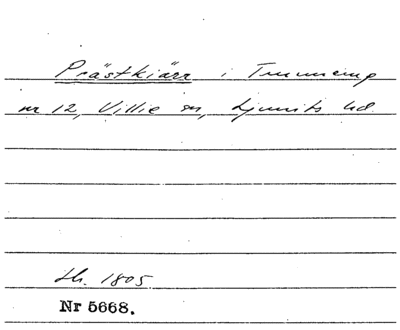 Prästkiärr i Trunnerup
nr 12, Villie sn, Ljunits hd.
sk. 1805
Nr 5668.